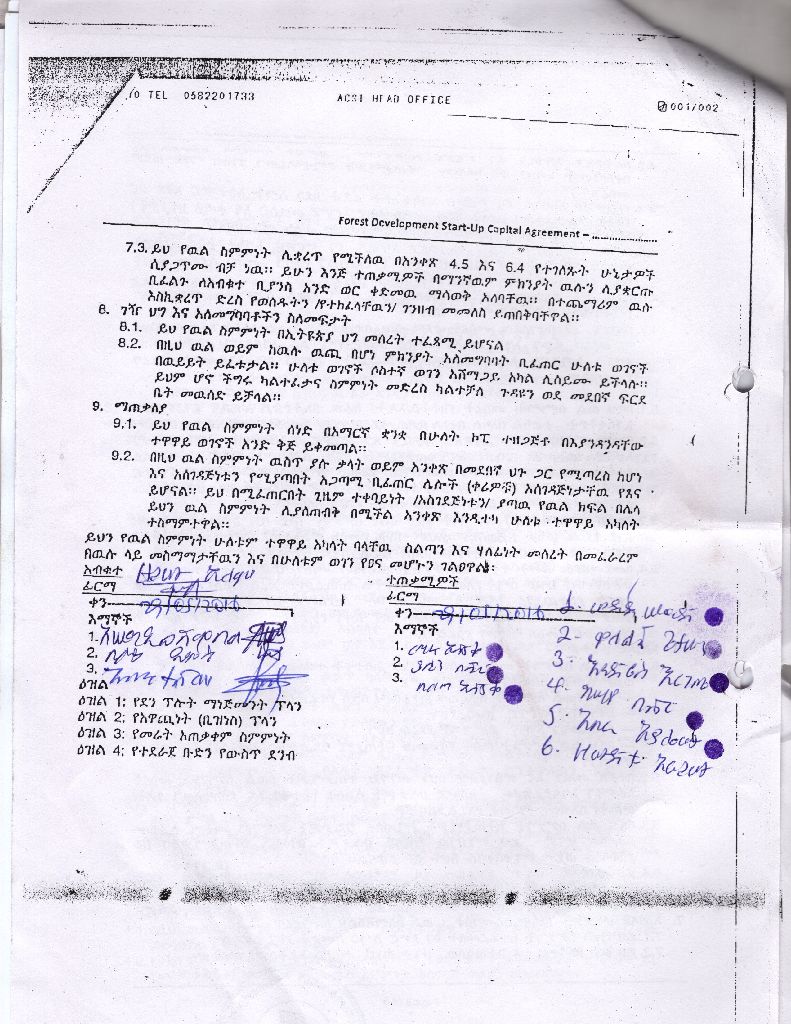 /0 TEL 0582201733 ACSI HEAD OFFICE 001/002
Forest Development Start-Up Capital Agreement – ....................
7.3. ይህ የዉል ስምምነት ሊቋረጥ የሚችለዉ በአንቀጽ 4.5 እና 6.4 የተገለጹት ሁኔታዎች
ሲያጋጥሙ ብቻ ነዉ። ይሁን እንጅ ተጠቃሚዎች በማንኛዉም ምክንያት ዉሉን ሊያቋርጡ
ቢፈልጉ ለአብቁተ ቢያንስ አንድ ወር ቀድመዉ ማሳወቅ አለባቸዉ። በተጨማሪም ዉሉ
እስኪቋረጥ ድረስ የወሰዱትን /የተከፈላቸዉን/ ገንዘብ መመለስ ይጠበቅባቸዋል።
8. ገዥ ህግ እና አለመግባባቶችን ስለመፍታት
8.1. ይህ የዉል ስምምነት በኢትዩጵያ ህግ መሰረት ተፈጻሚ ይሆናል
8.2. በዚህ ዉል ወይም ከዉሉ ዉጪ በሆነ ምክንያት አለመግባባት ቢፈጠር ሁለቱ ወገኖች
በዉይይት ይፈቱታል። ሁለቱ ወገኖች ሶስተኛ ወገን አሸማጋይ አካል ሊሰይሙ ይችላሉ።
ይህም ሆኖ ችግሩ ካልተፈታና ስምምነት መድረስ ካልተቻለ ጉዳዩን ወደ መደበኛ ፍርድ
ቤት መዉሰድ ይቻላል።
9. ማጠቃለያ
9.1. ይህ የዉል ስምምነት ሰነድ በአማርኛ ቋንቋ በሁለት ኮፒ ተዘጋጅቶ በእያንዳንዳቸው
ተዋዋይ ወገኖች አንድ ቅጅ ይቀመጣል።
9.2. በዚህ ዉል ስምምነት ዉስጥ ያሉ ቃላት ወይም አንቀጽ በመደበኛ ህጉ ጋር የሚጣረስ ከሆነ
እና አስገዳጅነቱን የሚያጣበት አጋጣሚ ቢፈጠር ሌሎች (ቀሪዎቹ) አስገዳጅነታቸዉ የጸና
ይሆናል። ይህ በሚፈጠርበት ጊዜም ተቀባይነት /አስገደጅነቱን/ ያጣዉ የዉል ክፍል በሌላ
ይህን ዉል ስምምነት ሊያስጠብቅ በሚችል አንቀጽ እንዲተካ ሁለቱ ተዋዋይ አካላት
ተስማምተዋል።
ይህን የዉል ስምምነት ሁለቱም ተዋዋይ አካላት ባላቸዉ ስልጣን እና ሃለፊነት መሰረት በመፈራረም
በዉሉ ላይ መስማማታቸዉን እና በሁለቱም ወገን የፀና መሆኑን ገልፀዋል፡
አብቁተ
ፊርማ
ቀን
እማኞች
1.
2.
3.
ተጠቃሚዎች
ፊርማ
ቀን
እማኞች
1.
2.
3.
1.
2.
3.
4.
5.
6.
ዕዝል
ዕዝል 1: የደን ፕሎት ማንጅመንት ፕላን
ዕዝል 2: የአዋጪነት (ቢዝነስ) ፕላን
ዕዝል 3: የመሬት አጠቃቀም ስምምነት
ዕዝል 4: የተደራጀ ቡድን የውስጥ ደንብ